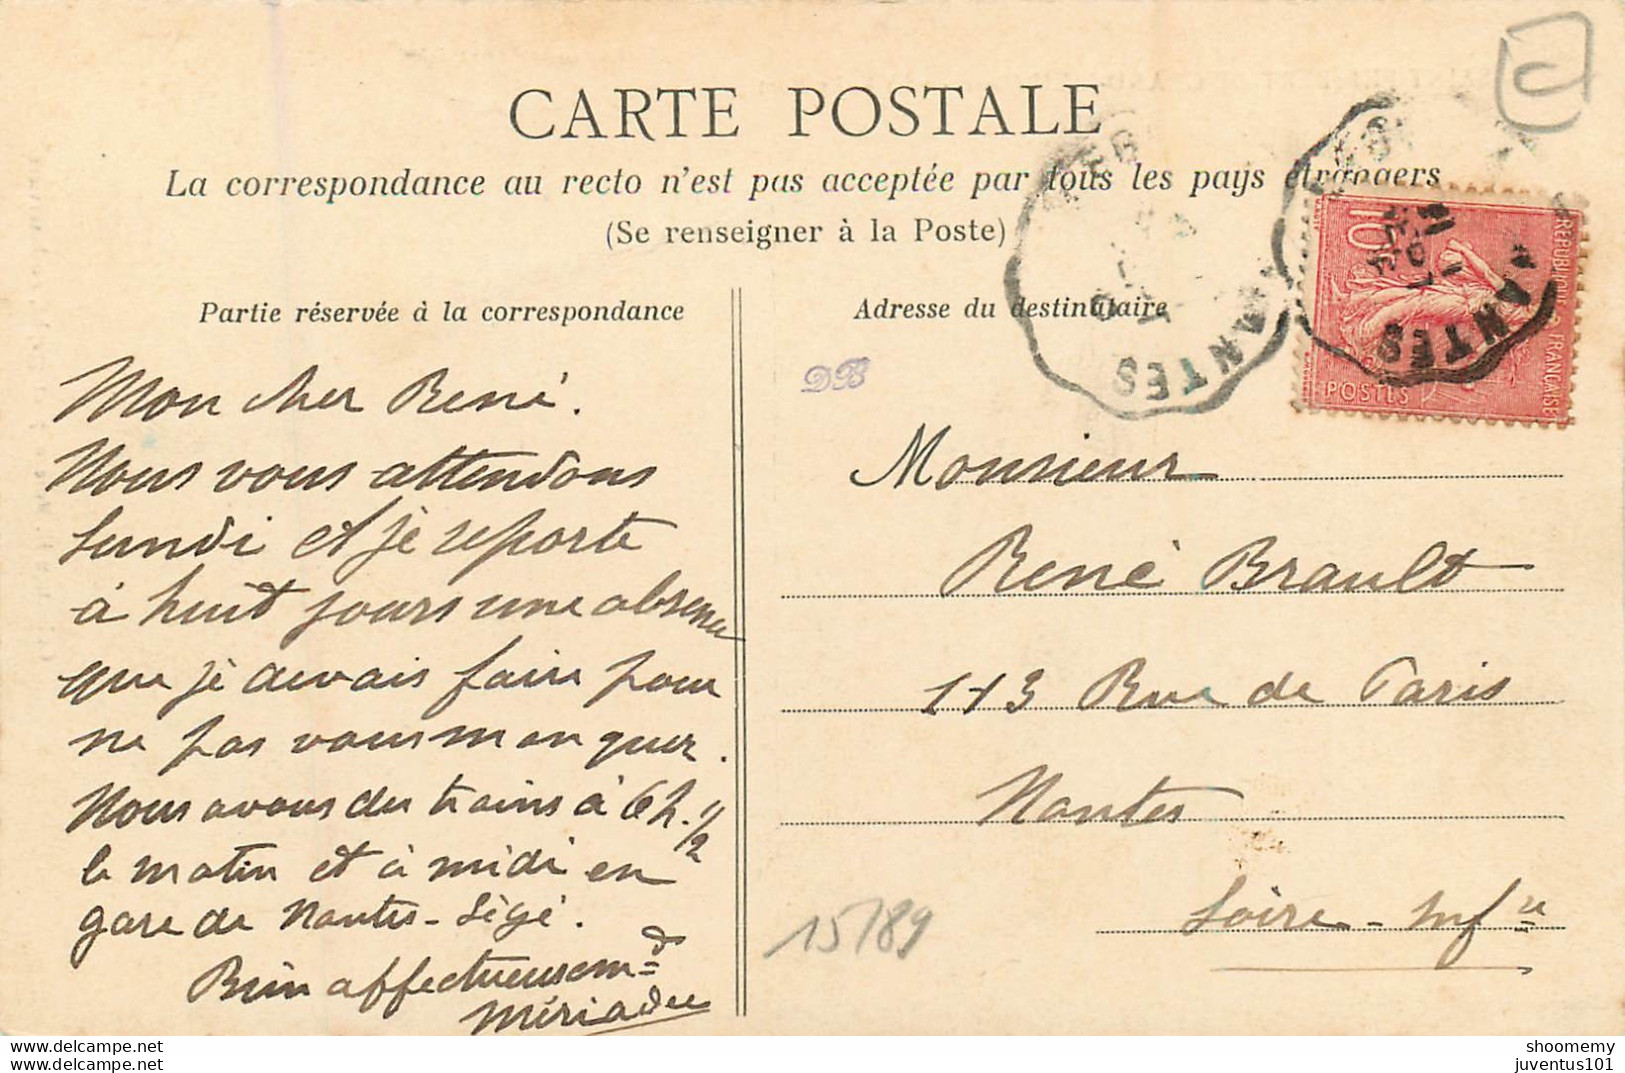 CARTE POSTALE
La correspondance au recto n'est pas acceptée par tous les pays étrangers
(Se renseigner à la Poste)
Partie réservée à la correspondance
Mon cher René.
Nous vous attendons
Lundi et je reporte
à huit jours une absence
que je devais faire pour
ne pas vous manquer.
Nous avons des trains à 6h.1/2
le matin et à midi en
gare de Nantes-Légé.
Bien affectueusemt
Mériadec
Adresse du destinataire
DB
Monsieur
René Brault
113 Rue de Paris
Nantes
Loire-Infre
15/89
NANTES
NANTES
10
REPUBLIQUE FRANÇAISE
POSTES
www.delcampe.net
shoomemy
juventus101